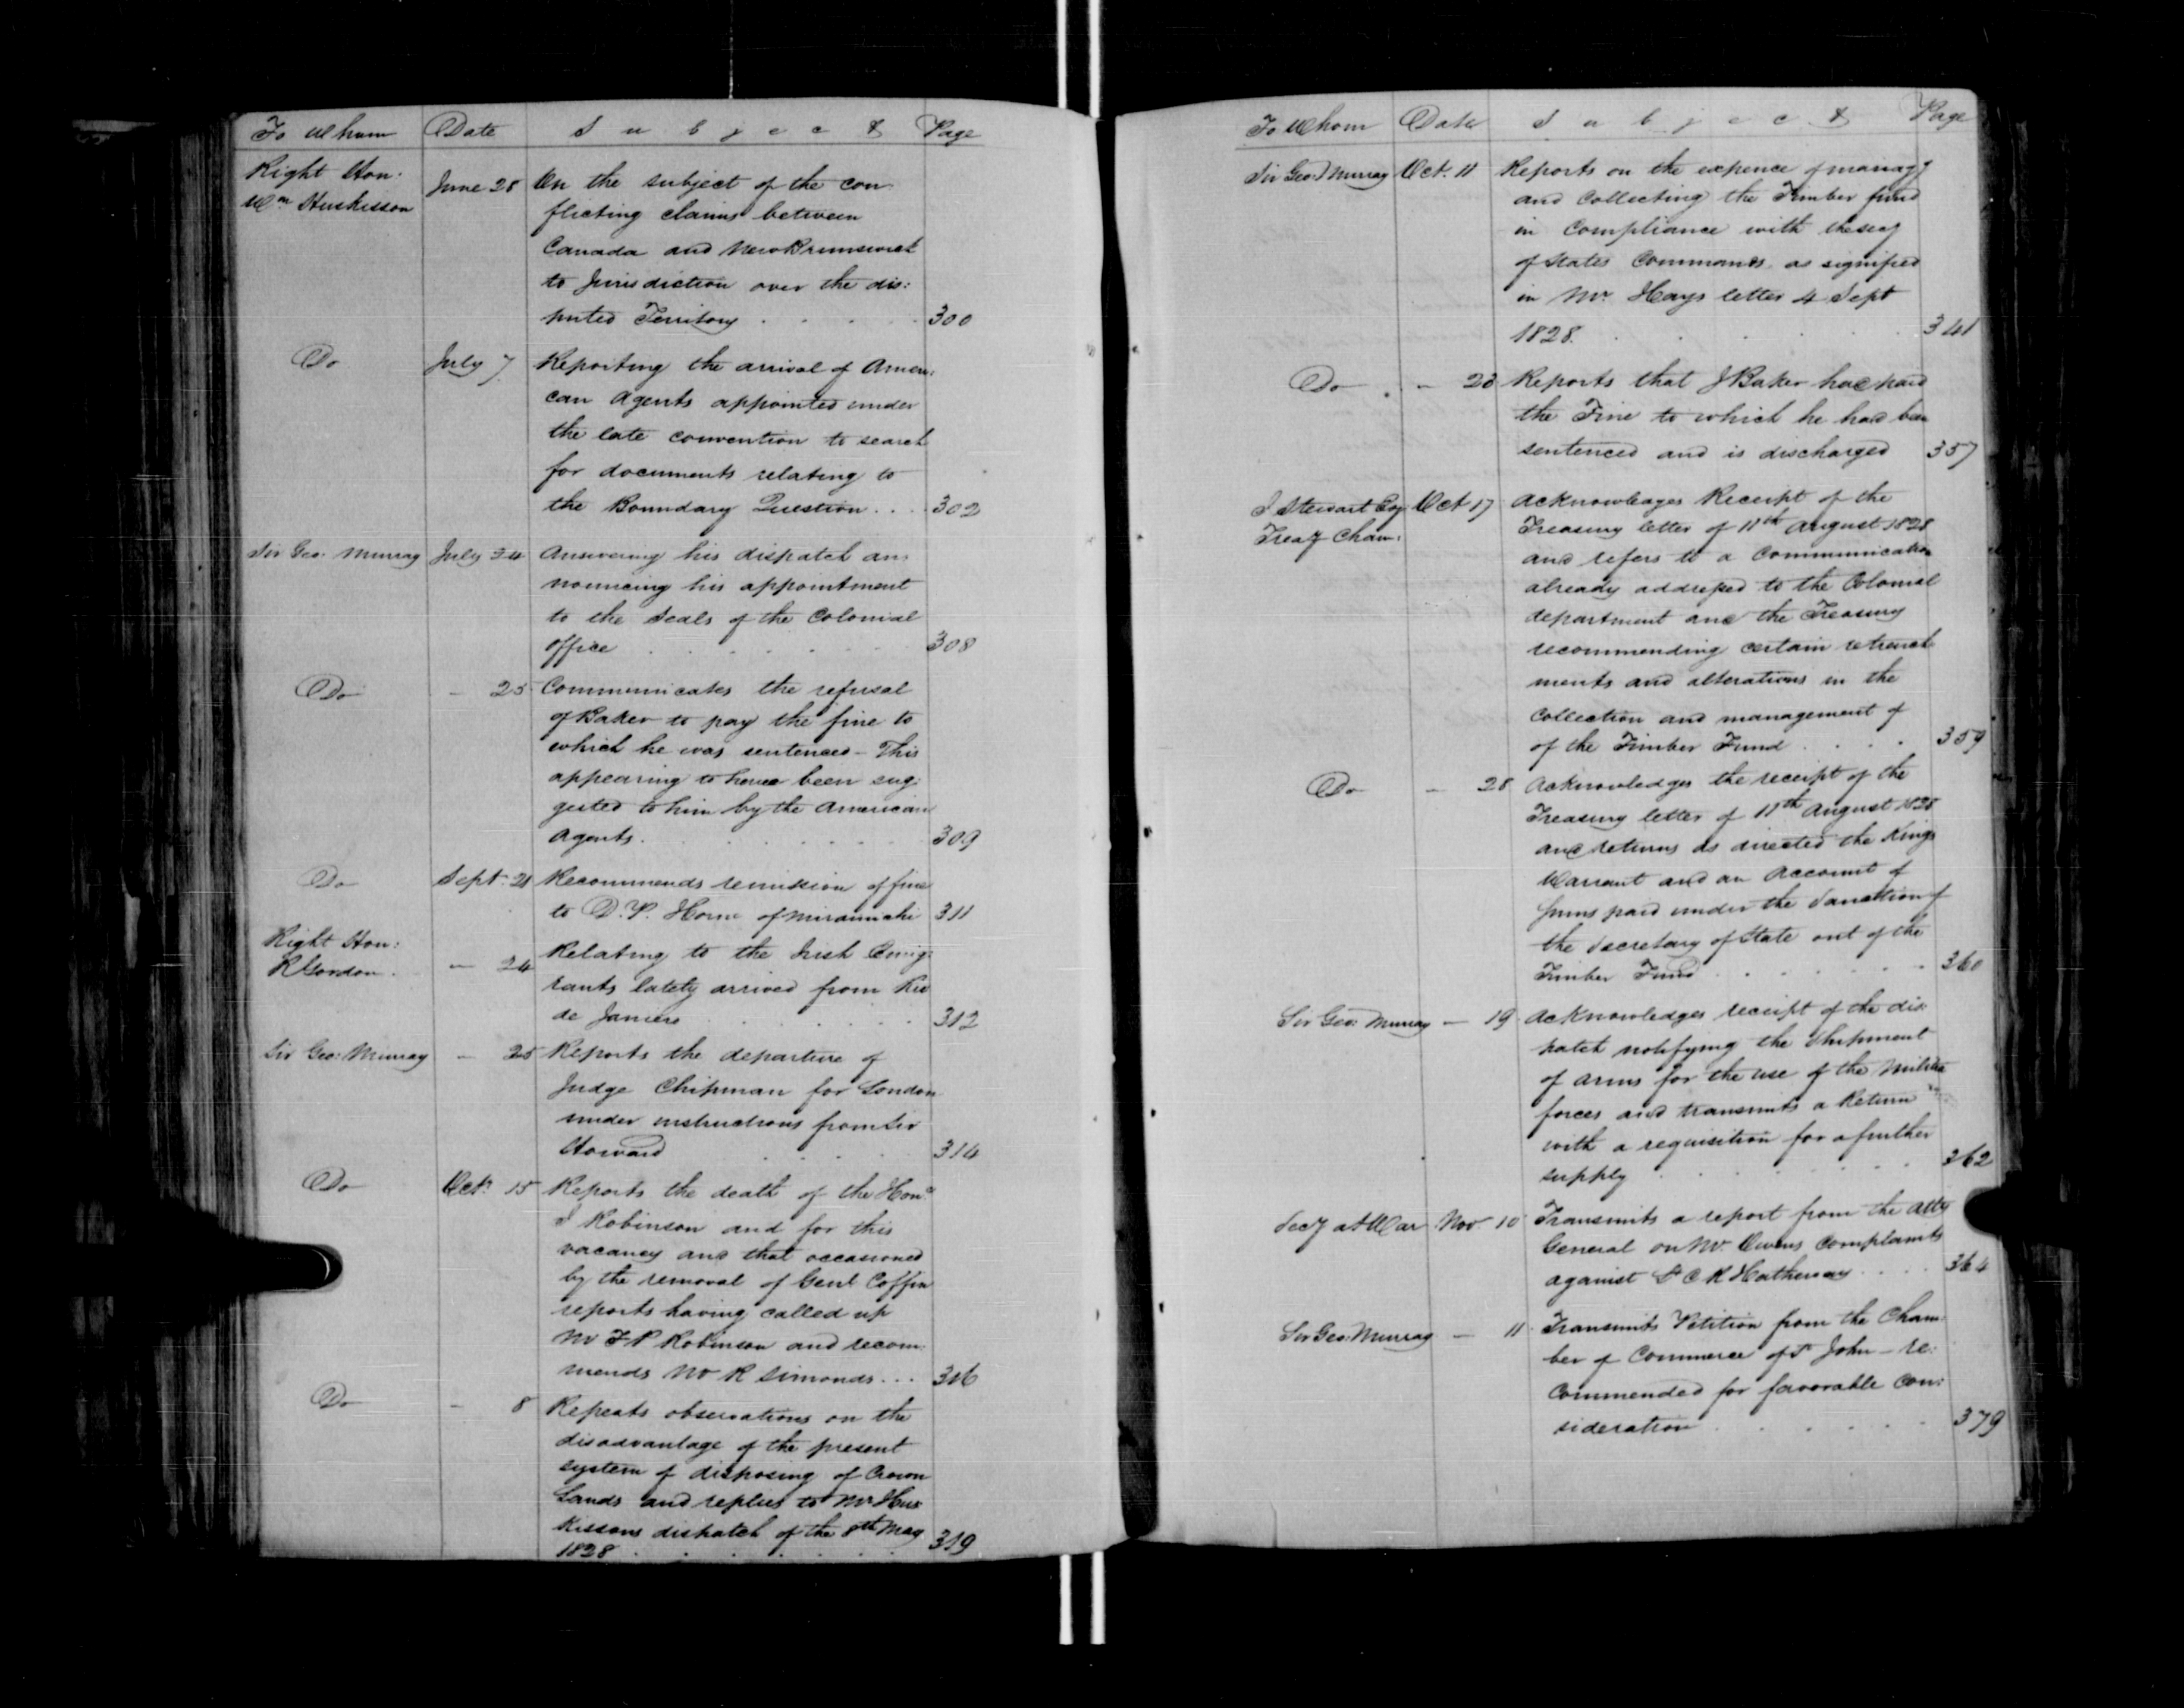 To Whom Date Subject Page
Right Hon: June 28 On the subject of the con
Wm Huskisson flicting claims between
Canada and New Brunswick
to Jurisdiction over the dis:
puted Territory . . . . . 300
Do July 7 Reporting the arrival of Ameri:
can Agents appointed under
the late convention to search
for documents relating to
the Boundary Question . . . 302
Sir Geo: Murray July 24 Answering his dispatch an:
nouncing his appointment
to the Seals of the Colonial
office . . . . . . 308
Do – 25 Communicates the refusal
of Baker to pay the fine to
which he was sentenced – This
appearing to have been sug:
gested to him by the American
Agents . . . . . . 309
Do Sept. 21 Recommends remission of fine
to D. P. Horne of Miramichi 311
Right Hon:
R Gordon. – 24 Relating to the Irish Emig:
rants lately arrived from Rio
de Janiero . . . . . 312
Sir Geo: Murray – 25 Reports the departure of
Judge Chipman for London
under instructions from Sir
Howard . . . . 314
Do Oct. 15 Reports the death of the Honb
J Robinson and for this
vacancy and that occasioned
by the removal of Genl Coffin
reports having called up
Mr F P Robinson and recom:
mends Mr R Simonds . . . 316
Do – 8 Repeats observations on the
disadvantage of the present
system of disposing of Crown
Lands and replies to Mr Hus
kissons dispatch of the 8th May
1828 . . . . . . 319
To Whom Date Subject Page
Sir Geo: Murray Oct. 11 Reports on the expence of manag
and Collecting the Timber fund
in Compliance with the secy
of States Commands, as signified
in Mr. Hays letter 4 Sept
1828. . . . . 341
Do – 23 Reports that J Baker has paid
the Fine to which he had been
sentenced and is discharged 357
J Stewart Esq Oct 17 Acknowleages Receipt of the
Treay Cham: Treasury letter of 11th August 1828
and refers to a Communication
already addressed to the Colonial
department and the Treasury
recommending certain retrench
ments and alterations in the
Collection and management of
of the Timber Fund . . . . 359
Do – 28 Acknowledges the receipt of the
Treasury letter of 11th August 1828
and returns as directed the Kings
Warrant and an Account of
sums paid under the Sanction of
the Secretary of State out of the
Timber Fund . . . . . . 360
Sir Geo: Murray – 19 Acknowledges receipt of the dis:
patch notifying the Shipment
of arms for the use of the Militia
forces and transmits a Return
with a requisition for a further
supply . . . . . . 362
Secy at War Nov 10 Transmits a report from the Atty
General on Mr. Owens Complaints
against Lt C R Hatheway . . . . 364
Sir Geo: Murray – 11 Transmits Petition from the Cham:
ber of Commerce of St John – re:
commended for favorable con:
sideration . . . . . . 379